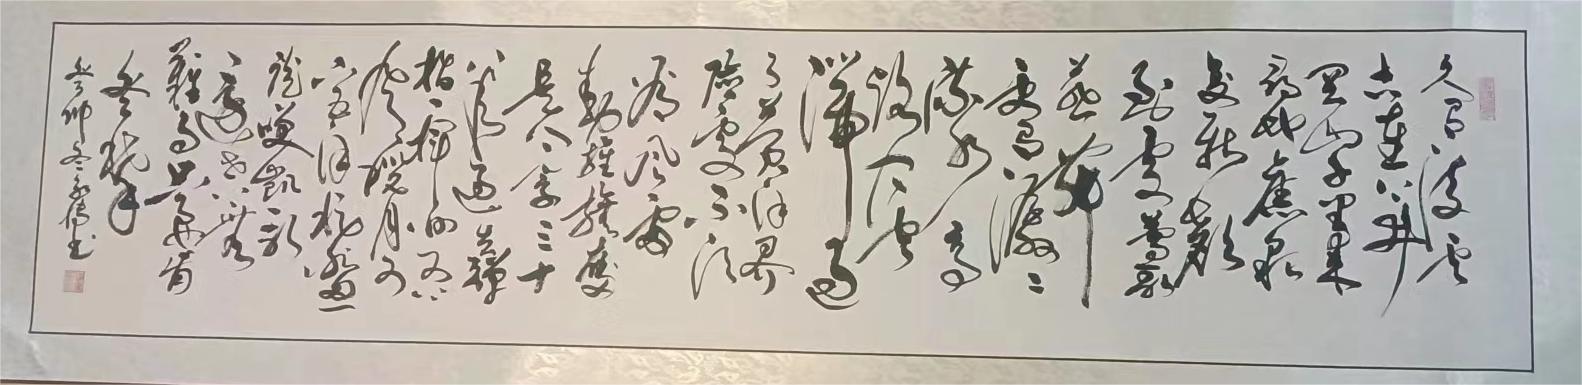 久有凌云
志重上井
冈山千里来
寻故地旧貌
变新颜
到处莺歌
燕舞
更有潺潺
流水高
路入云
端过
了黄洋界
险处不须
看风雷
动旌旗奋
是人寰三十
八年过去弹
指一挥间可上
九天揽月可
下五洋捉鳖
谈笑凯歌
还世上无
难事只要肯
登攀
癸卯冬书